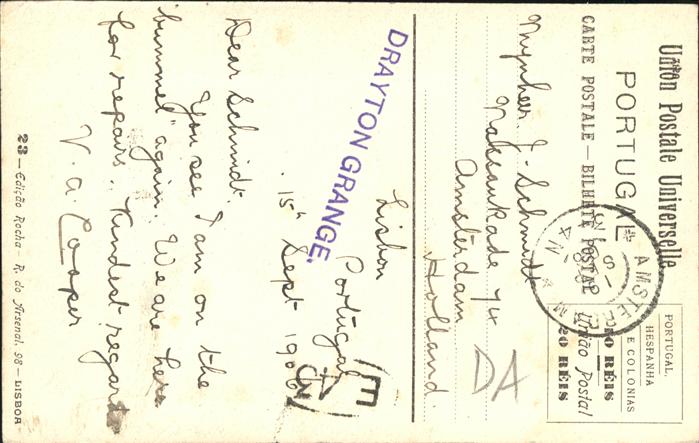 Union Postale Universelle
PORTUGAL
CARTE POSTALE — BILHETE POSTAL
PORTUGAL,
HESPANHA
E COLONIAS
RÉIS
União Postal
20 RÉIS
AMSTERDAM
Mynheer J. Schmidt
74
Amsterdam
Holland.
DA
DRAYTON GRANGE.
Lisbon
Portugal
15th Sept
Dear Schmidt.
You see I am on the
"bummel" again. We are here
for repairs. Kindest regards
V. A. Cooper
23 — Edição Rocha — R. do Arsenal, 98 — LISBOA